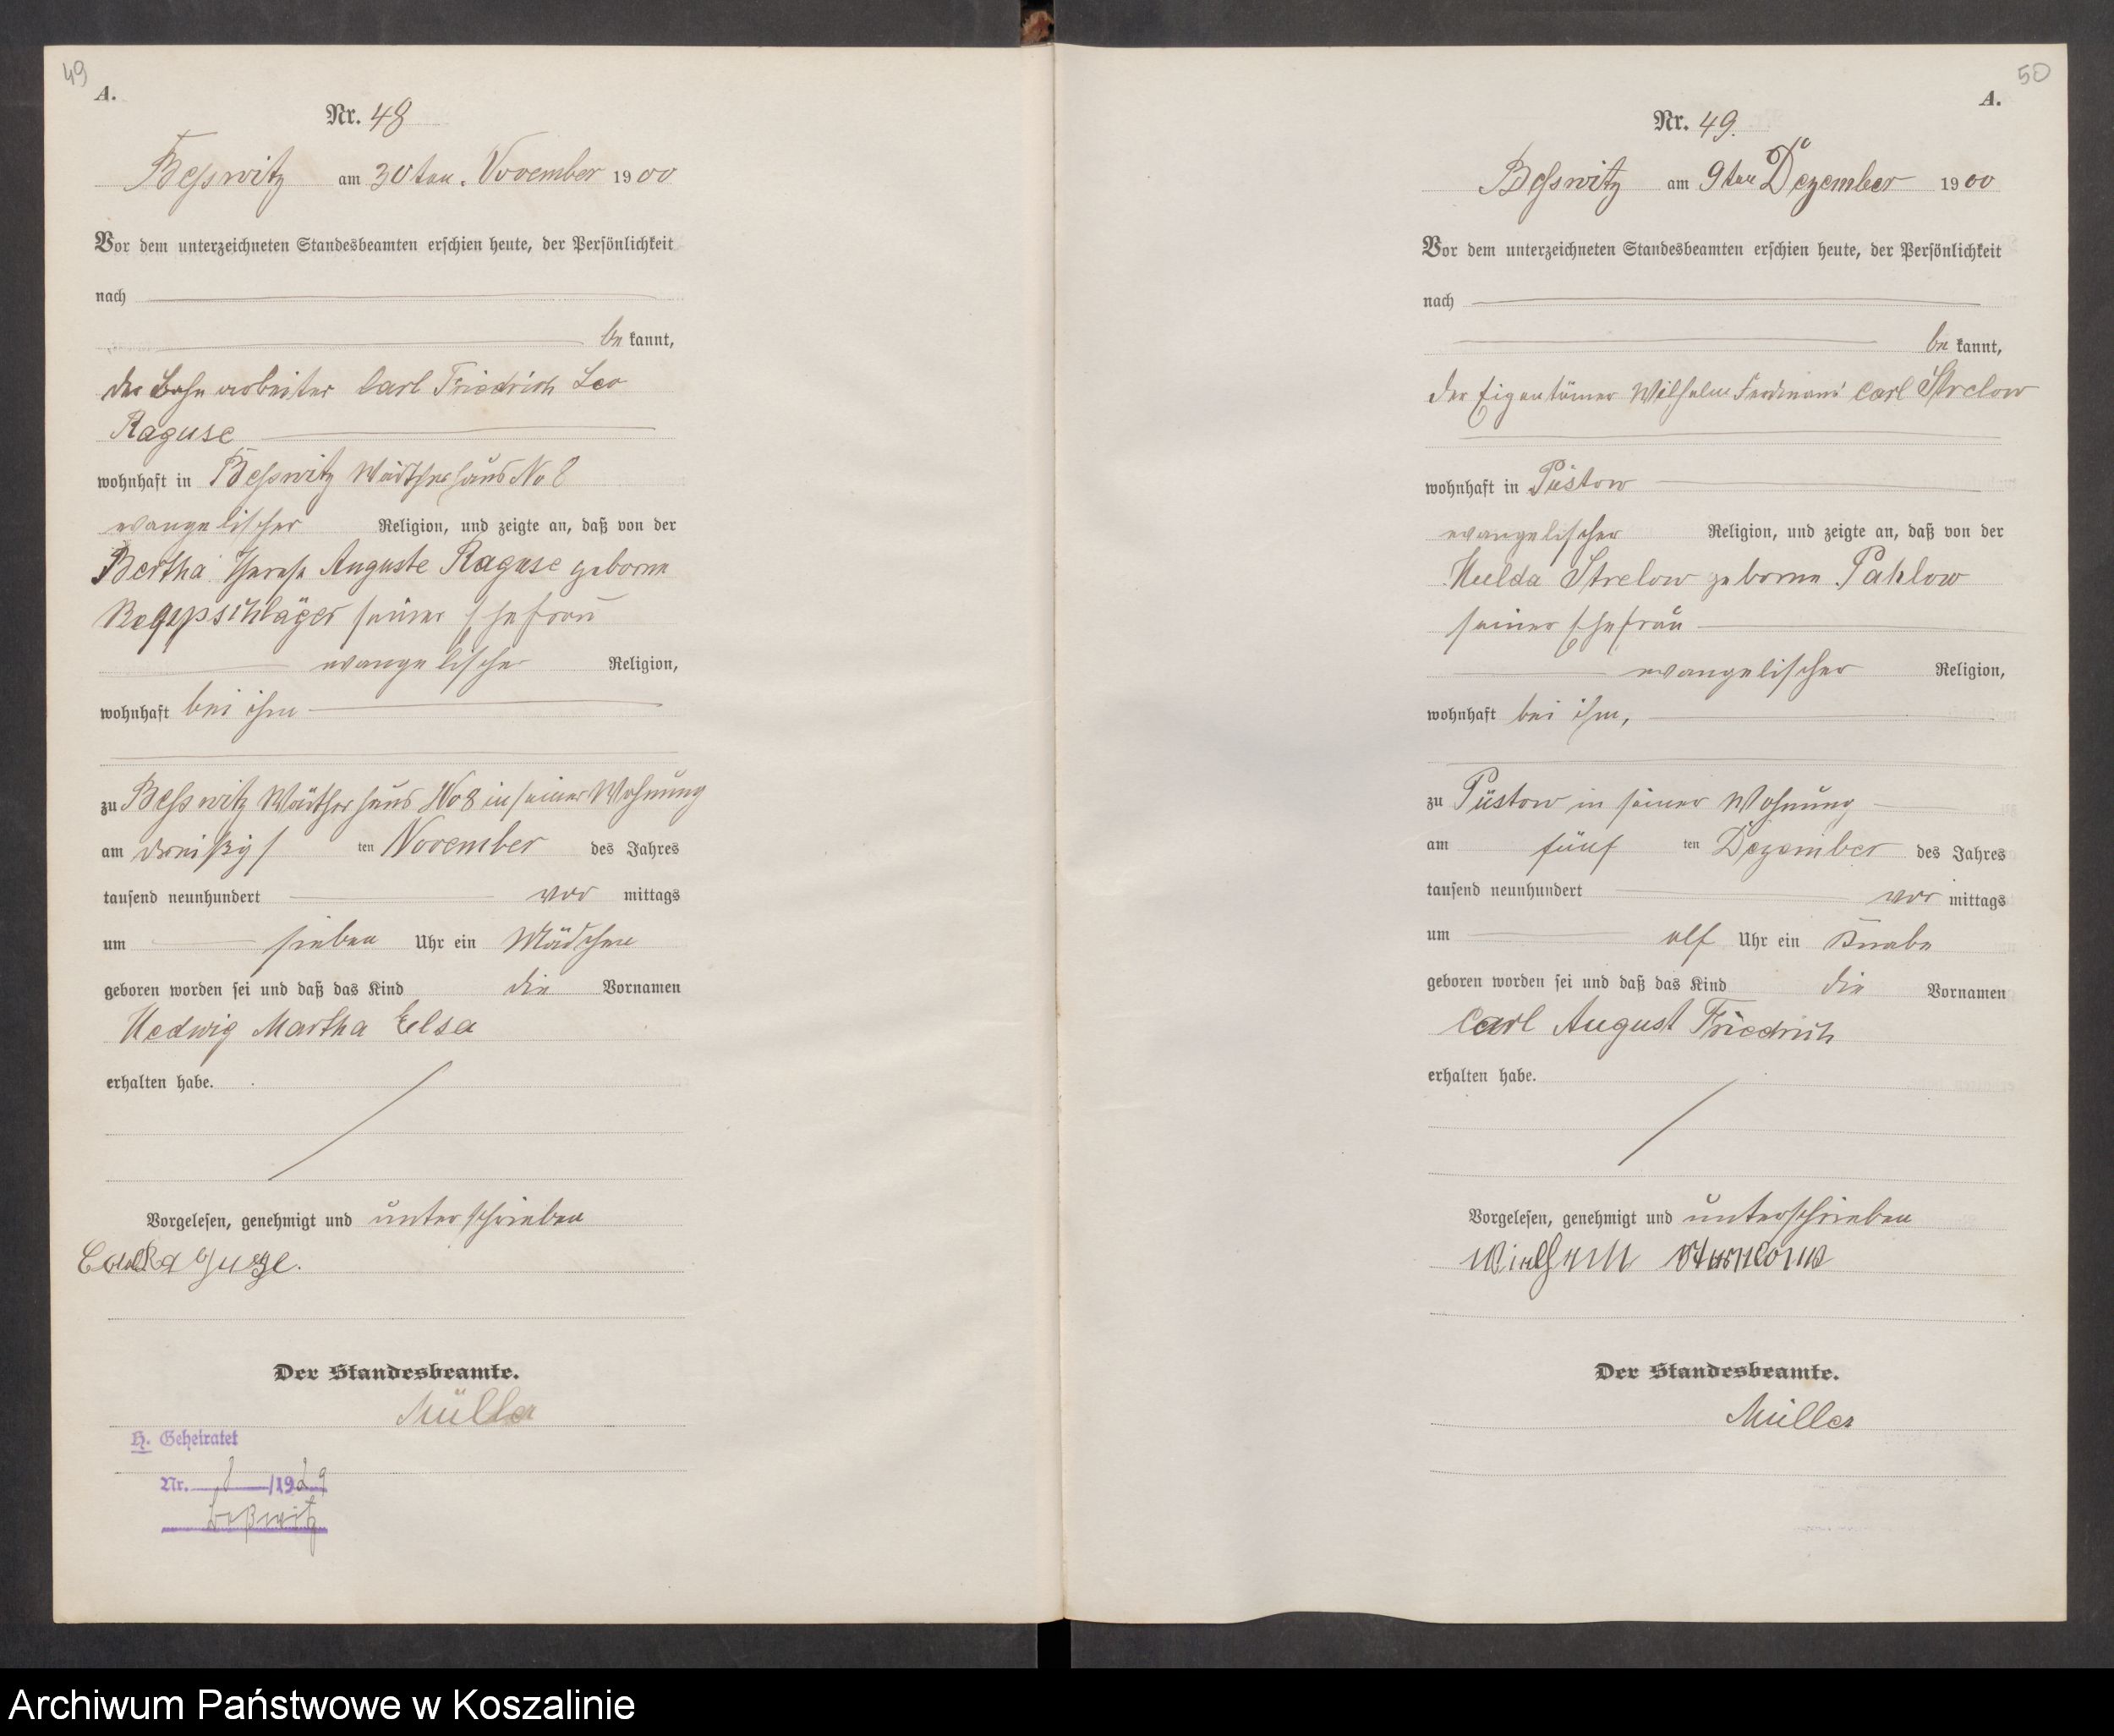 49
A.
Nr. 48
Beßwitz am 30ten November 1900
Vor dem unterzeichneten Standesbeamten erschien heute, der Persönlichkeit
nach
be kannt,
der Bahnarbeiter Carl Friedrich Leo
Raguse
wohnhaft in Beßwitz Wärterhaus No 8
evangelischer Religion, und zeigte an, daß von der
Bertha Therese Auguste Raguse geborene
seiner Ehefrau
evangelischer Religion,
wohnhaft bei ihm
zu Beßwitz Wärterhaus No 8 in seiner Wohnung
am dreißigs ten November des Jahres
tausend neunhundert vor mittags
um sieben Uhr ein Mädchen
geboren worden sei und daß das Kind die Vornamen
Hedwig Martha Elsa
erhalten habe.
Vorgelesen, genehmigt und unterschrieben
Carl Raguse.
Der Standesbeamte.
Müller
H. Geheiratet
Nr. 8 /1929
Beßwitz
50
A.
Nr. 49.
Beßwitz am 9ten Dezember 1900
Vor dem unterzeichneten Standesbeamten erschien heute, der Persönlichkeit
nach
be kannt,
der Eigentümer Wilhelm Ferdinand Carl Strelow
wohnhaft in Püstow
evangelischer Religion, und zeigte an, daß von der
Hulda Strelow geborene Pahlow
seiner Ehefrau
evangelischer Religion,
wohnhaft bei ihm,
zu Püstow in seiner Wohnung
am fünf ten Dezember des Jahres
tausend neunhundert vor mittags
um elf Uhr ein Knabe
geboren worden sei und daß das Kind die Vornamen
Carl August Friedrich
erhalten habe.
Vorgelesen, genehmigt und unterschrieben
Wilhelm Strelow
Der Standesbeamte.
Müller
Archiwum Państwowe w Koszalinie